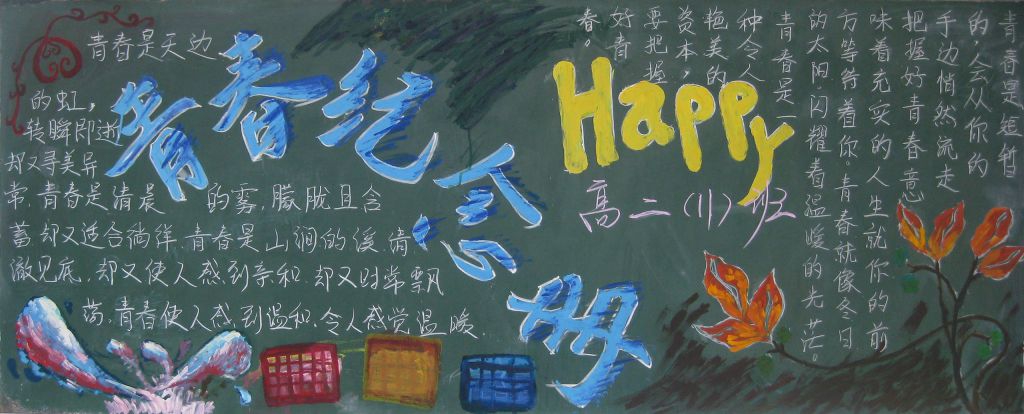 青春是天边
的虹,
转瞬即逝
却又寻美异
常,青春是清晨 的雾,朦胧且含
蓄却又适合徜徉.青春是山涧的溪清
澈见底.却又使人感到亲和.却又时常飘
荡,青春使人感到温和.令人感觉温暖.
青春纪念册
Happy
高二(11)班
青春是短暂
的,会从你的
手边悄然流走
把握好青春意
味着充实的人生就你的前
方等待着你.青春就像冬日
的太阳.闪耀着温暖的光芒。
青春是一
种令人
艳美的
资本,
要把握
好青
春。